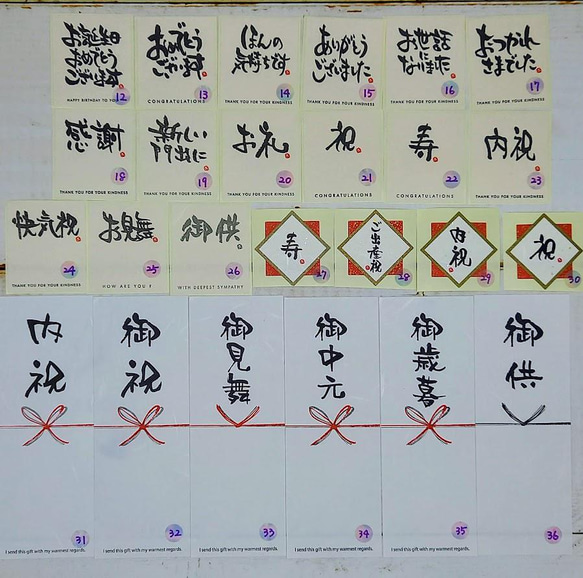 お誕生日
おめでとう
ございます
HAPPY BIRTHDAY TO YOU
12
おめでとう
ございます
CONGRATULATIONS
13
ほんの
気持ちです
THANK YOU FOR YOUR KINDNESS
14
ありがとう
ございました
THANK YOU FOR YOUR KINDNESS
15
お世話に
なりました
THANK YOU FOR YOUR KINDNESS
16
おつかれ
さまでした
THANK YOU FOR YOUR KINDNESS
17
感謝
THANK YOU FOR YOUR KINDNESS
18
新しい
門出に
THANK YOU FOR YOUR KINDNESS
19
お礼
THANK YOU FOR YOUR KINDNESS
20
祝
CONGRATULATIONS
21
寿
CONGRATULATIONS
22
内祝
THANK YOU FOR YOUR KINDNESS
23
快気祝
THANK YOU FOR YOUR KINDNESS
24
お見舞
HOW ARE YOU ?
25
御供
WITH DEEPEST SYMPATHY
26
寿
27
ご出産祝
28
内祝
29
祝
30
内祝
I send this gift with my warmest regards.
31
御祝
I send this gift with my warmest regards.
32
御見舞
I send this gift with my warmest regards.
33
御中元
I send this gift with my warmest regards.
34
御歳暮
I send this gift with my warmest regards.
35
御供
36